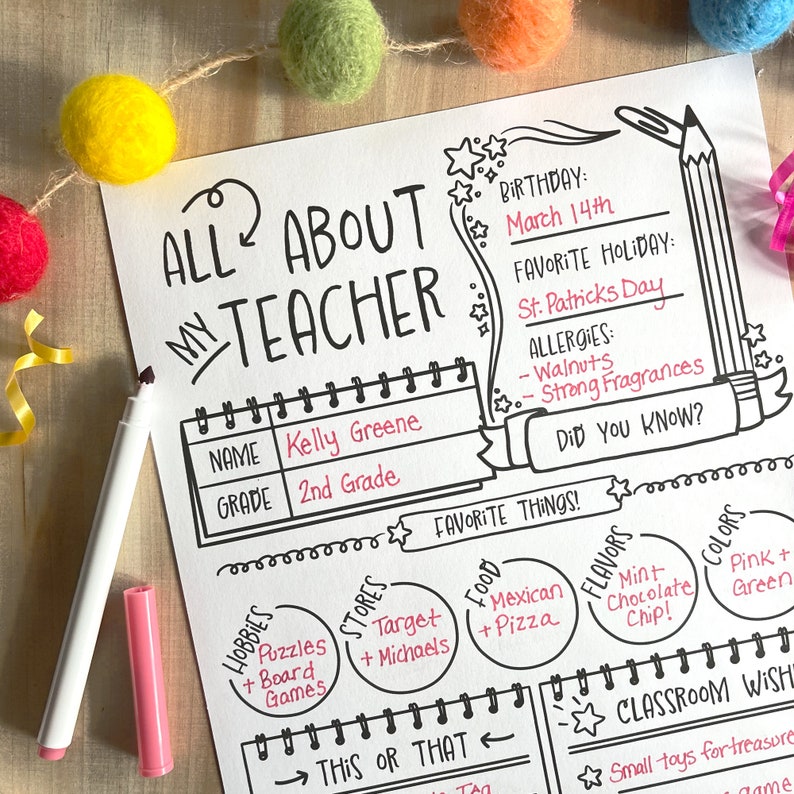 ALL ABOUT
MY TEACHER
BIRTHDAY:
March 14th
FAVORITE HOLIDAY:
St. Patricks Day
ALLERGIES:
- Walnuts
- Strong Fragrances
DID YOU KNOW?
NAME Kelly Greene
GRADE 2nd Grade
FAVORITE THINGS!
HOBBIES
Puzzles
+ Board
Games
STORES
Target
+ Michaels
FOOD
Mexican
+ Pizza
FLAVORS
Mint
Chocolate
Chip!
COLORS
Pink +
Green
THIS OR THAT
CLASSROOM WISH
Small toys for treasure
game